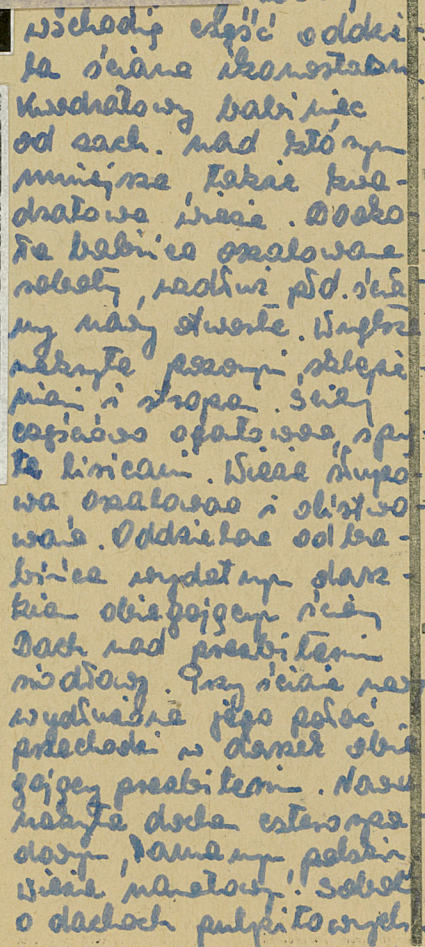 wschodnią część oddzie-
la ściana ikonostasu.
Kwadratowy babiniec
od zach. nad którym
mniejsza także kwa-
dratowa wieża. Dooko-
ła babińca oszalowane
soboty, wzdłuż płd. ścia
ny nawy otwarte. Wnętrze
nakryte pozornymi sklepie
niami i stropem. Ściany
częściowo oszalowane,
te lisicami. Wieża słupo-
wa oszalowana i olistwo-
wana. Oddzielone od ba-
bińca wydatnym dasz-
kiem obiegającym ściany
Dach nad prezbiterium
siodłowy. Przy ścianie nawy
wydłużona jego połać
przechodzi w daszek obie
gający prezbiterium. Nawa
nakryta dachem czterospa-
dowym, łamanym, polskim
wieżą namiotowy. Soboty
o dachach pulpitowych